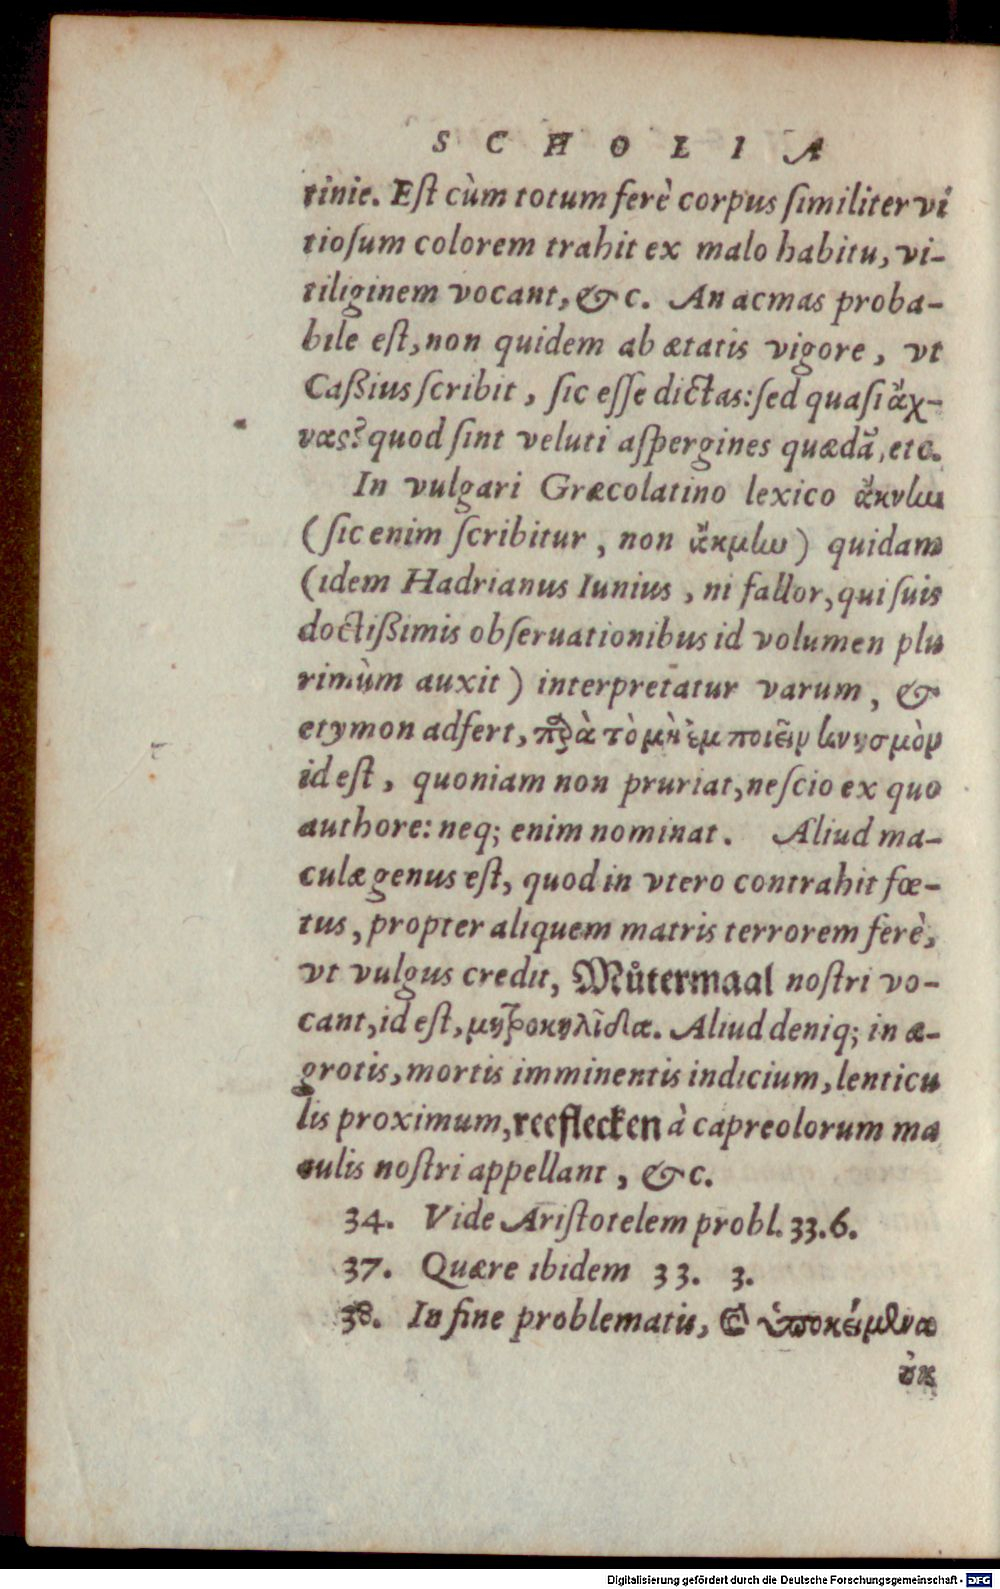 SCHOLIA
tinie. Est cùm totum ferè corpus similiter vi
tiosum colorem trahit ex malo habitu, vi-
tiliginem vocant, &c. An acmas proba-
bile est, non quidem ab ætatis vigore, vt
Caßius scribit, sic esse dictas: sed quasi ἄχ-
νας? quod sint veluti aspergines quædã, etc.
In vulgari Græcolatino lexico ἄκνην
(sic enim scribitur, non ἄκμην) quidam
(idem Hadrianus Iunius, ni fallor, qui suis
doctißimis obseruationibus id volumen plu
rimùm auxit) interpretatur varum, &
etymon adfert, παρὰ τὸ μὴ ἐμποιεῖν κνησμὸν
id est, quoniam non pruriat, nescio ex quo
authore: neq; enim nominat. Aliud ma-
culæ genus est, quod in vtero contrahit fœ-
tus, propter aliquem matris terrorem ferè,
vt vulgus credit, Můtermaal nostri vo-
cant, id est, μητροκηλῖδα. Aliud deniq; in æ-
grotis, mortis imminentis indicium, lenticu
lis proximum, reeflecken à capreolorum ma
culis nostri appellant, &c.
34. Vide Aristotelem probl. 33.6.
37. Quære ibidem 33. 3.
38. In fine problematis, ὑποκείμενα
οὐκ
Digitalisierung gefördert durch die Deutsche Forschungsgemeinschaft - DFG